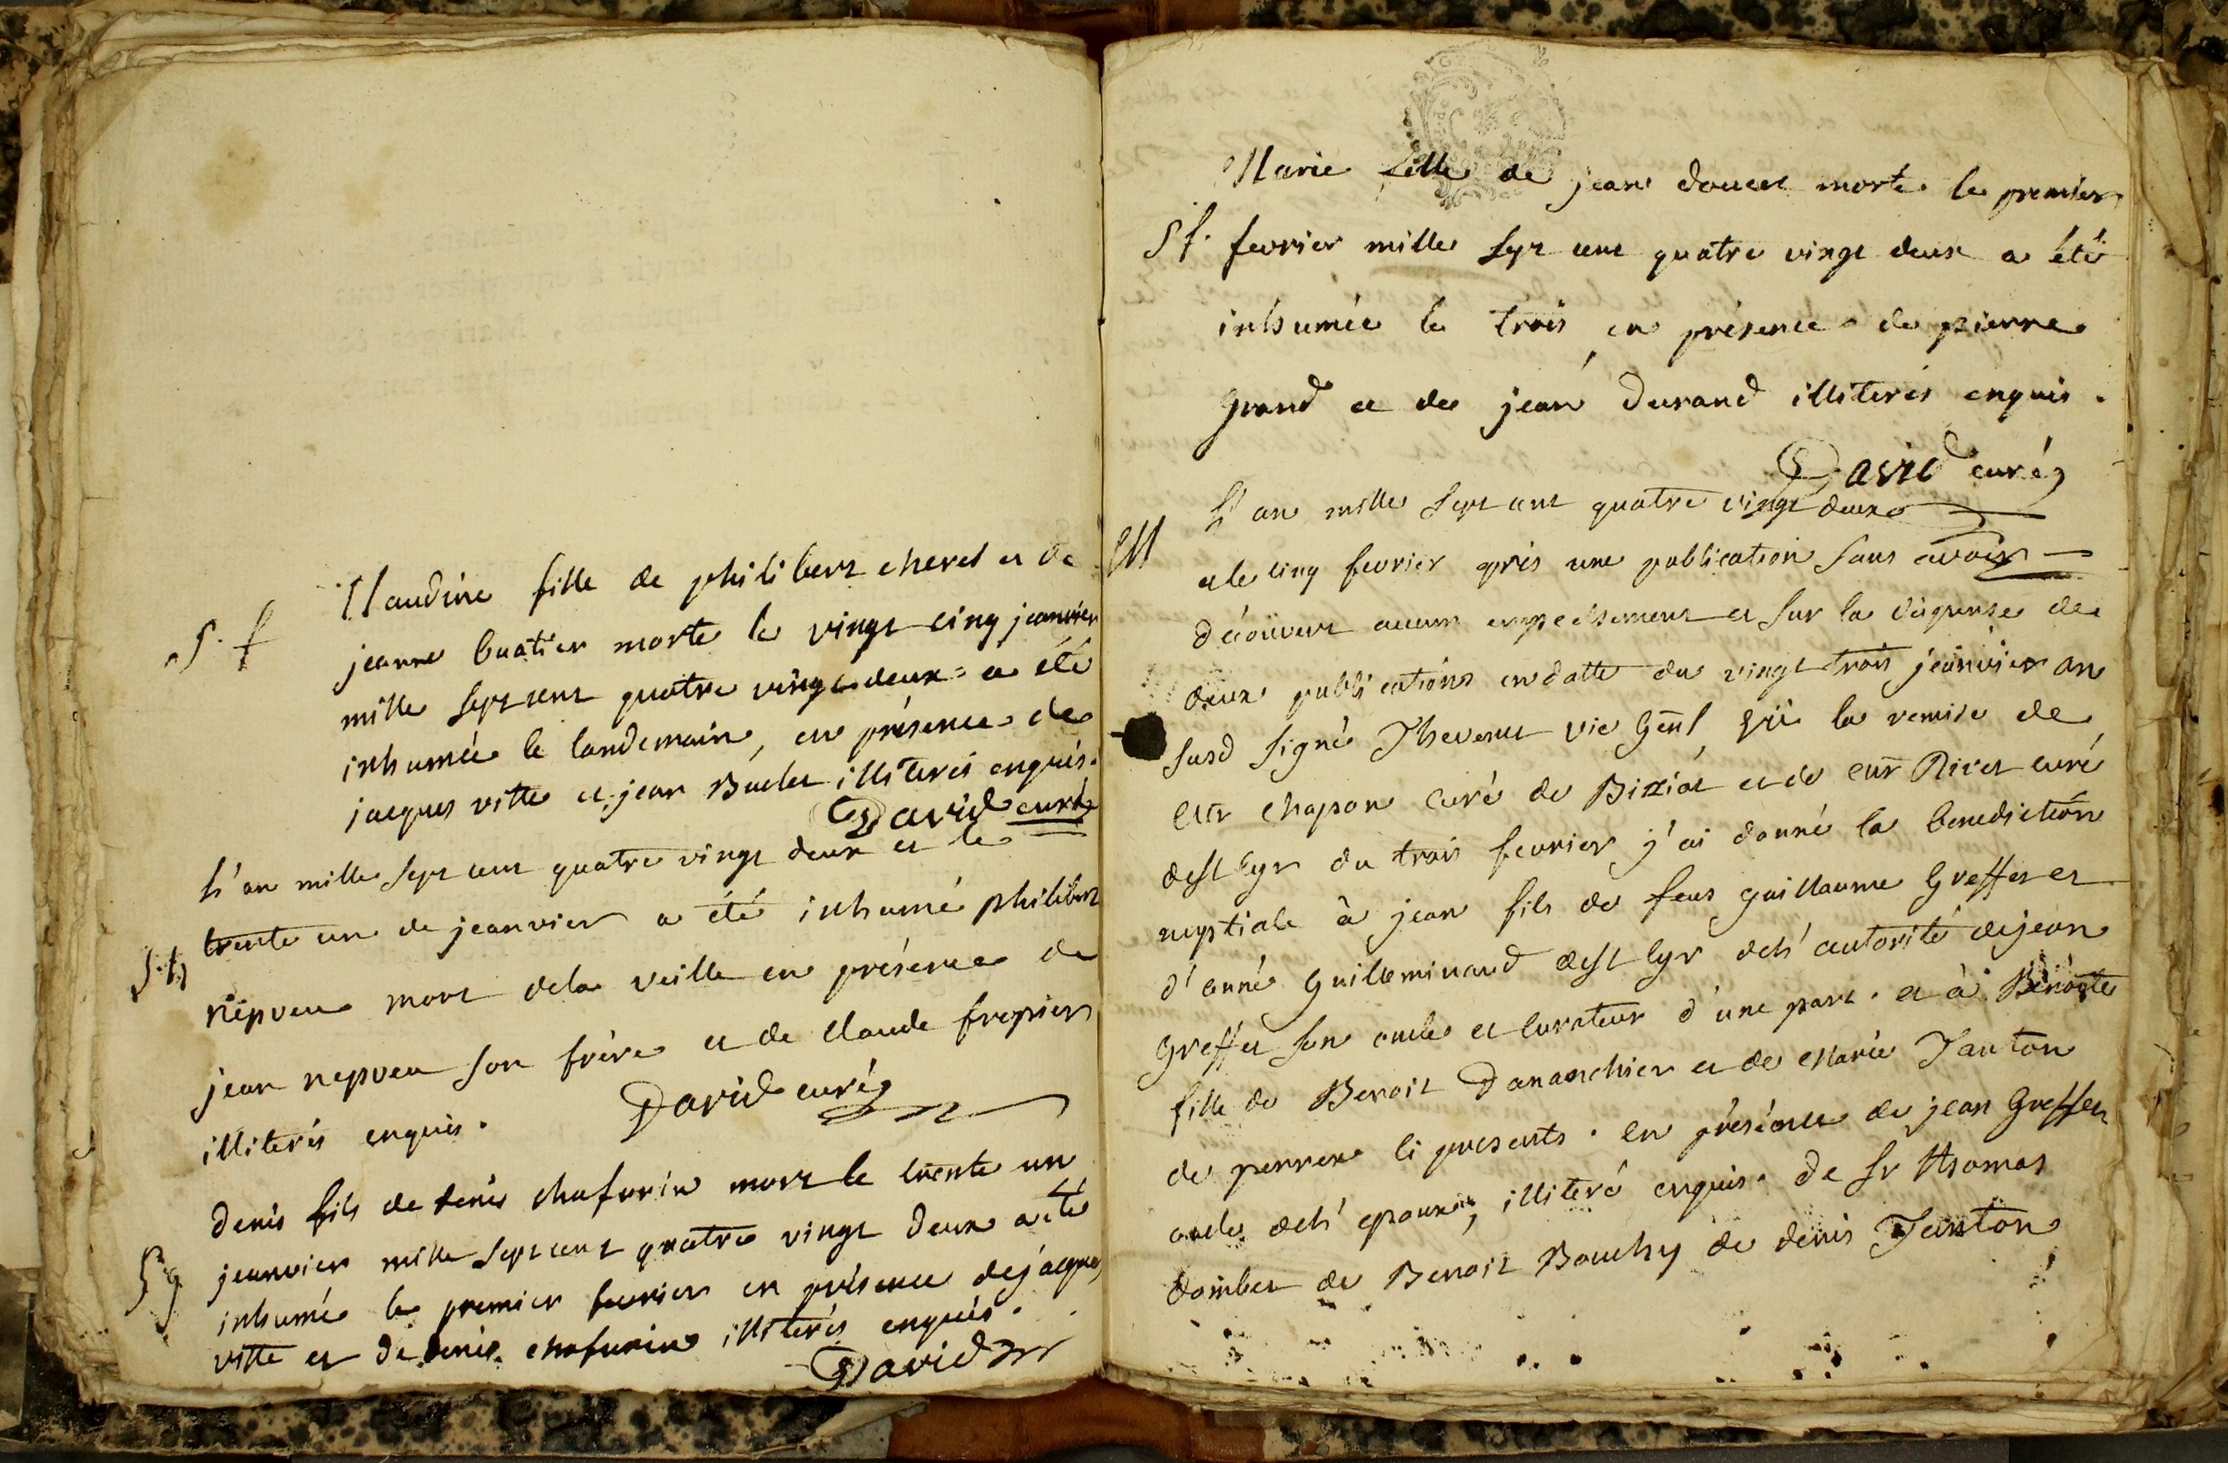 Claudine fille de philibert cheret et de
S. f jeanne buatier morte le vingt cinq jeanvier
mille sept cent quatre vingt deux a été
inhumée le landemain, en présence de
jacques vitte et jean Buclet illiterés enquis.
David curé
L'an mille sept cent quatre vingt deux et le
trente un de jeanvier a été inhumé philibert
S. h nepveu mort de la veille en présence de
jean nepveu son frère et de claude frepier
illiterés enquis. David curé
denis fils de denis chafurin mort le trente un
S g jeanvier mille sept cent quatre vingt deux a été
inhumé le premier fevrier en présence de jacques
vitte et de denis chafurin illiterés enquis.
David
Marie fille de jean doucet morte le premier
S f. fevrier mille sept cent quatre vingt deux a été
inhumée le trois en présence de pierre
grand et de jean durand illiterés enquis.
David curé
L'an mille sept cent quatre vingt deux
M et le cinq fevrier après une publication sans avoir
découvert aucun empechement et sur la dispense de
deux publications en datte du vingt trois jeanvier an
susd signé Thevenet vic genl vû la remise de
Mr chapon curé de Biziat et de Mr Rivet curé
de st Cyr du trois fevrier j'ai donné la benediction
nuptiale à jean fils de feus guillaume Greffet et
d'anne Guilleminaud de st Cyr de l'autorité de jean
Greffet son oncle et curateur d'une part. et à Benoite
fille de Benoit Dananchier et de Marie Janton
de perrex ci presents. en présence de jean Greffet
oncle de l'epoux, illiteré enquis. de Sr thomas
dombet de Benoit Bouchy de denis Janton